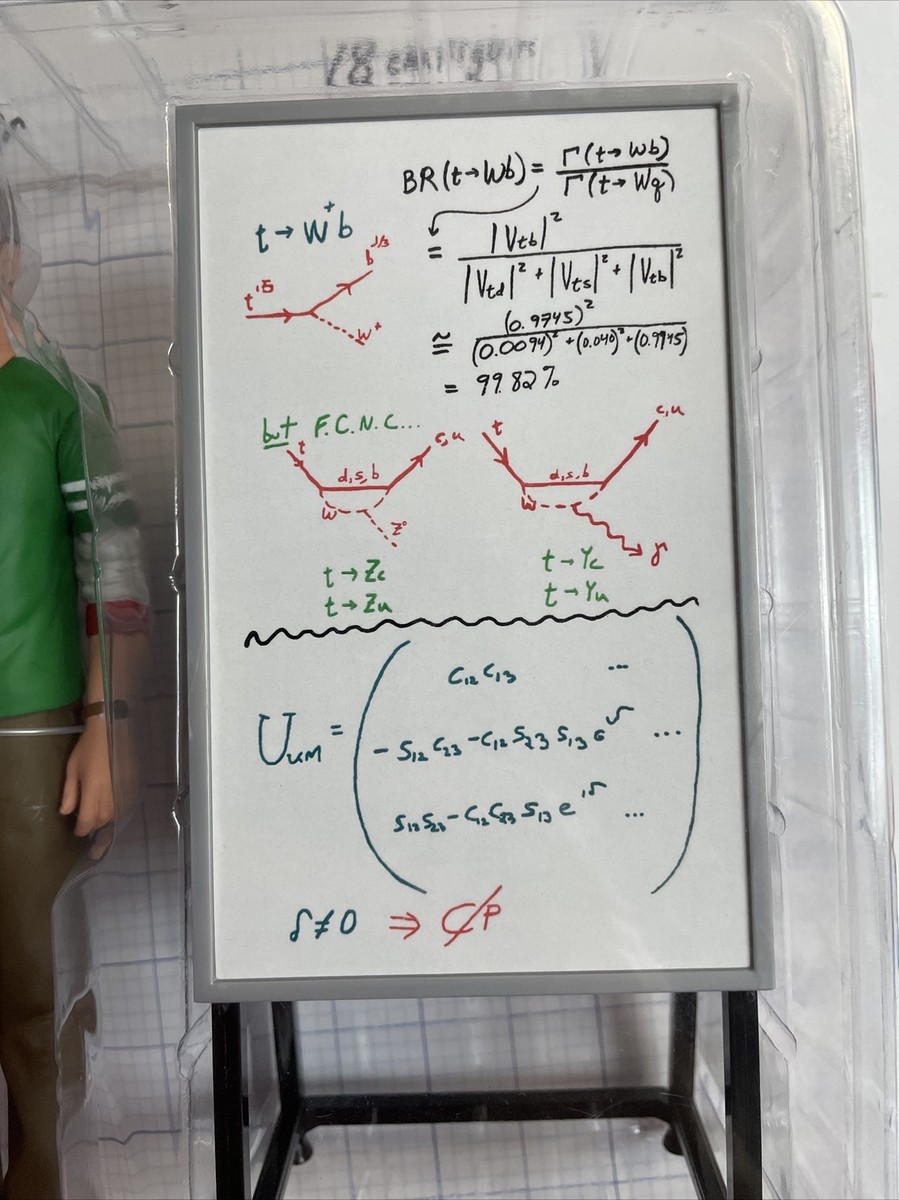 BR(t→Wb) = Γ(t→Wb) / Γ(t→Wq)
t → W⁺b
= |Vtb|² / |Vtd|² + |Vts|² + |Vtb|²
b
t
W⁺
≅ (0.9745)² / (0.0094)² + (0.040)² + (0.9945)
= 99.82%
but F.C.N.C...
t
d,s,b
c,u
W
Z°
t
d,s,b
c,u
W
γ
t → Zc
t → Zu
t → Yc
t → Yu
C₁₂C₁₃ ...
UKM =
- S₁₂C₂₃ - C₁₂S₂₃S₁₃e^iδ ...
S₁₂S₂₃ - C₁₂C₂₃S₁₃e^iδ ...
δ≠0 ⇒ C̸P